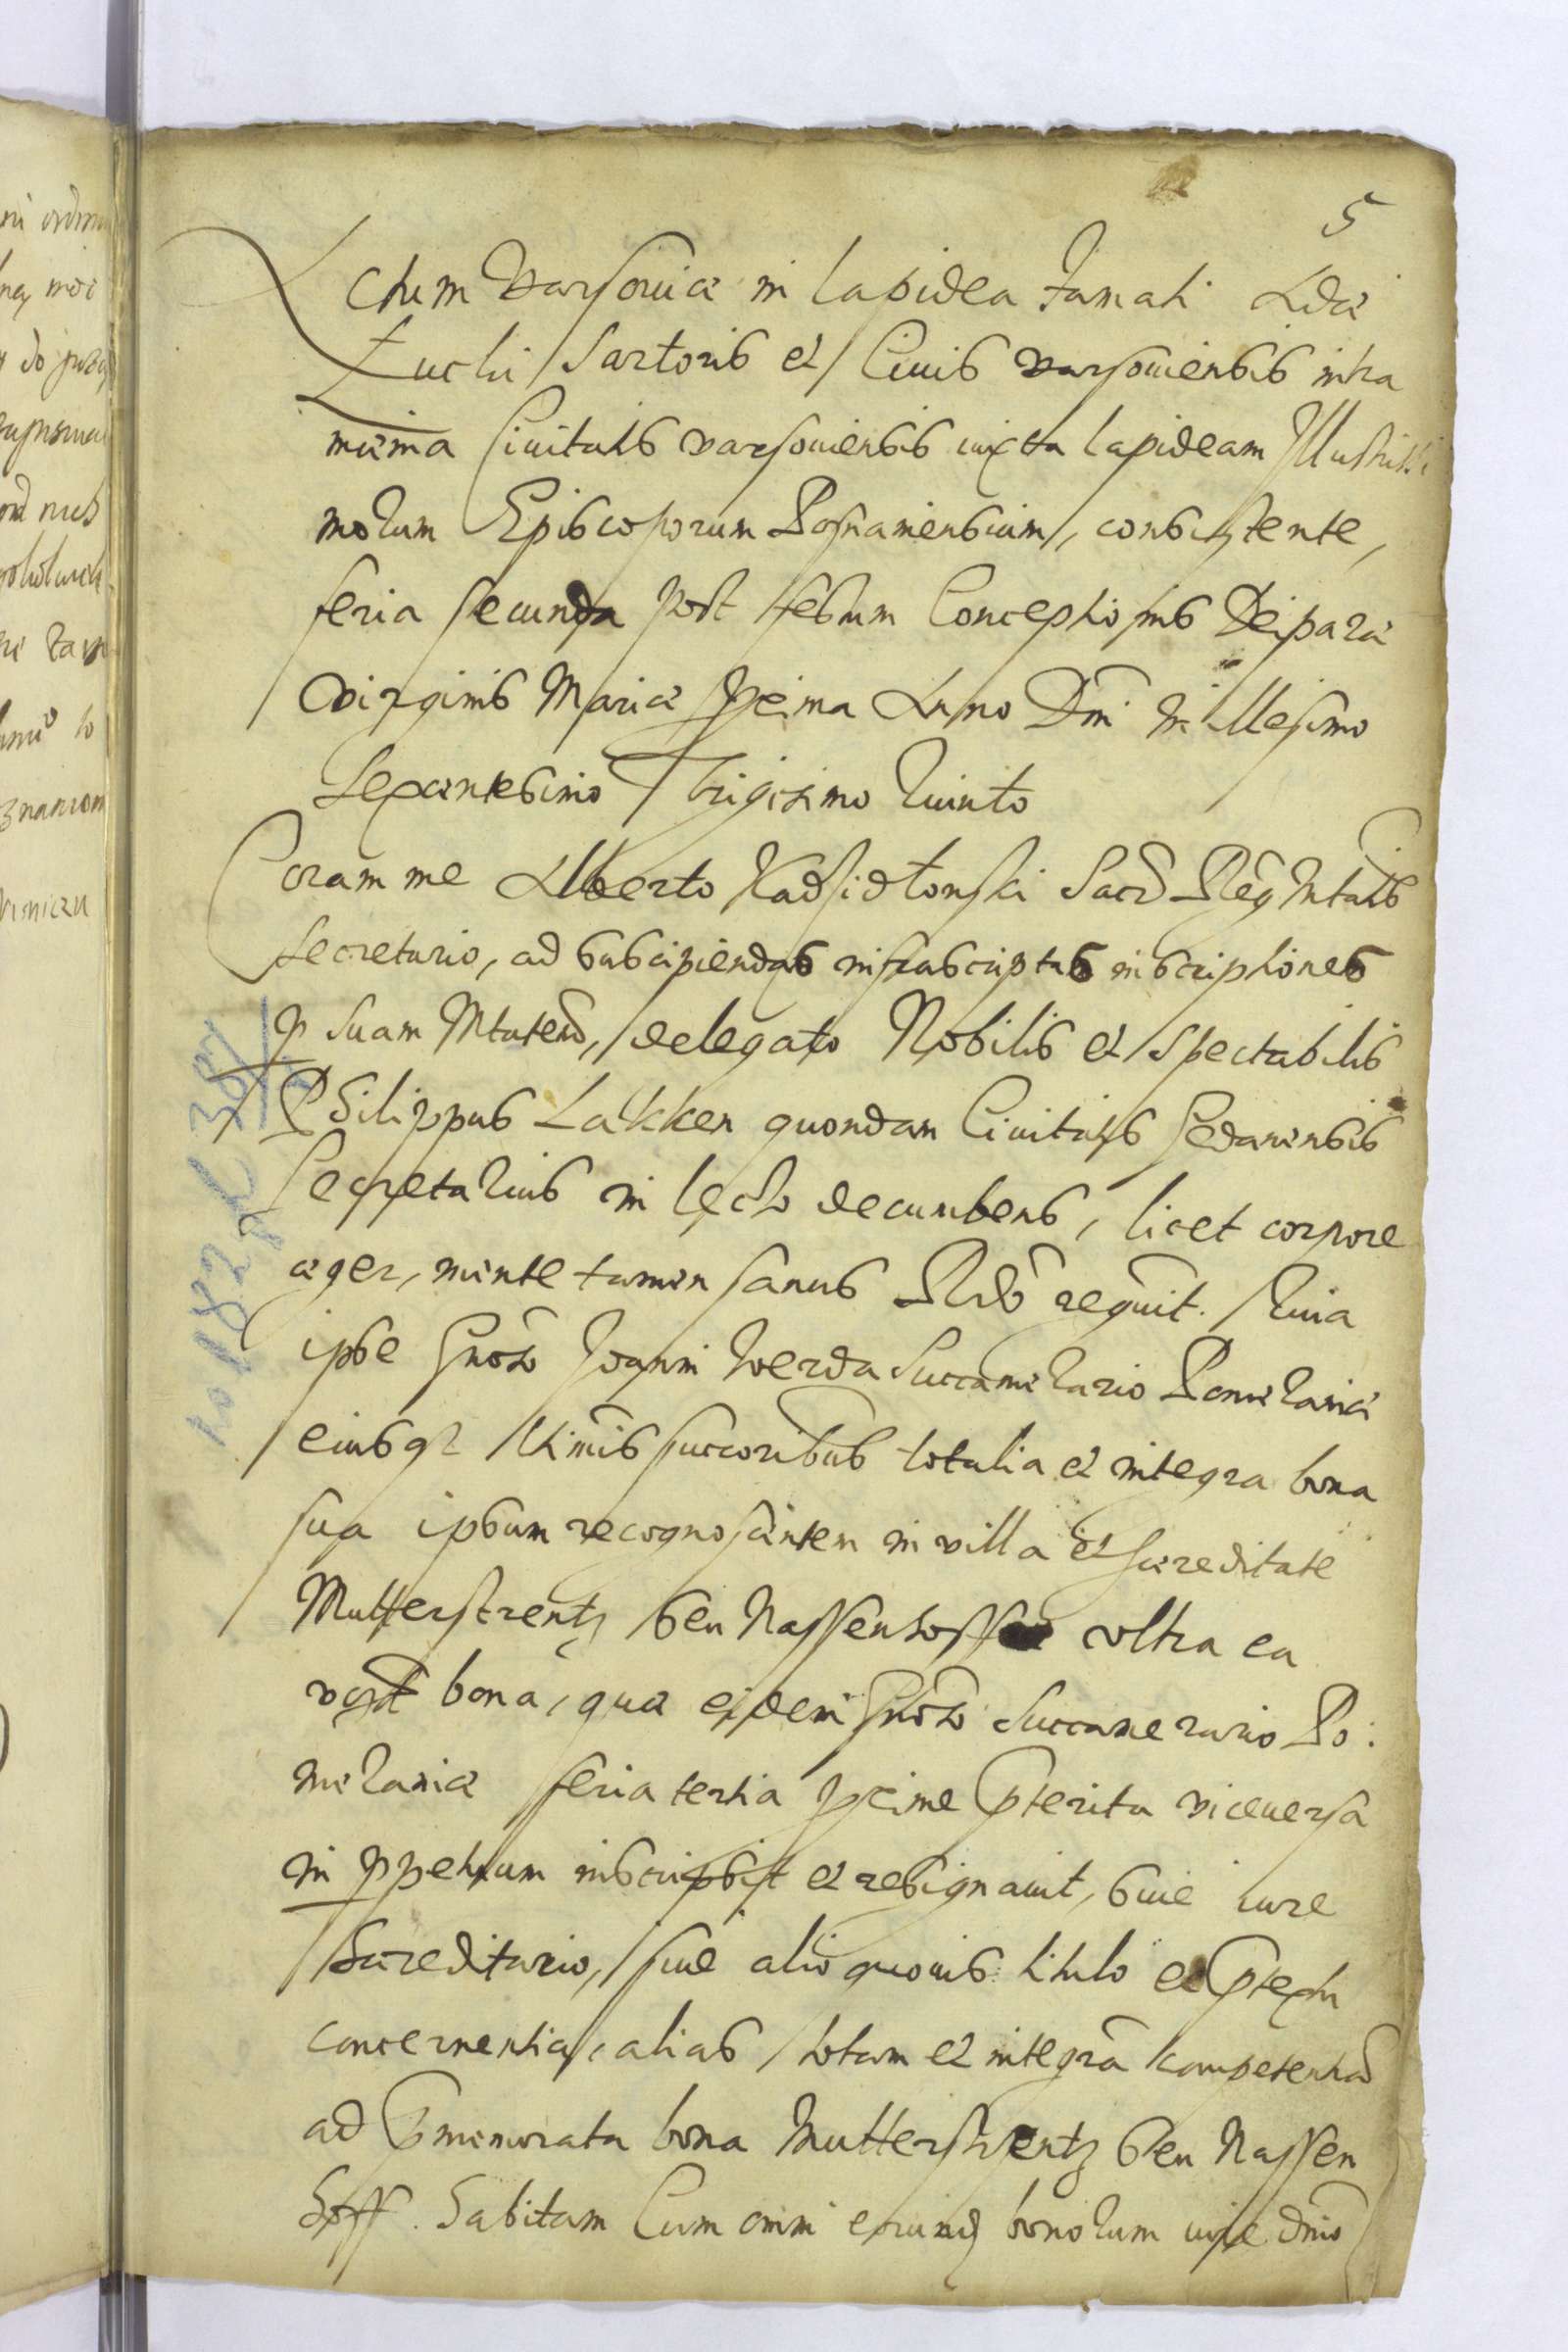 5
Actum Varsoviæ in lapidea Famati Adæ
Łuchi Sartoris et Ciuis varsouiensis intra
mænia Ciuitatis varsouiensis iuxta lapideam Illustrissi
morum Episcoporum Posnaniensium, consistente,
feria secunda post festum Conceptionis Deiparæ
Virginis Mariæ pxima Anno Dni Millesimo
Sexcentesimo Trigesimo Quinto
Coram me Alberto Kadzidłonski Sacrę Reg Mtatis
Secretario, ad suscipiendas infrascriptas inscriptiones
p Suam Mtatem, delegato Nobilis et Spectabilis
Philippus Lakken quondam Ciuitatis Gedanensis
Secretarius in lecto decumbens, licet corpore
æger, mente tamen sanus Rcdo regnuit. Quia
ipse Gnoso Joanni Werda Succamerario Pomeraniæ
eiusq ltimis succoribus totalia et integra bona
sua ipsum recognoscentem in villa et hæreditate
Mutterstrentz seu Nassenhoff vltra ea
bona, quæ eidem Gnoso Succamerario Po:
meraniæ feria tertia pxime pterita viceuersa
in ppetuum inscripsit et resignauit, siue iure
hæreditario, siue alio quouis titulo et ptextu
concernentia, alias totam et integrã competentiã
ad pmemorata bona Mutterstrentz seu Nassen
hoff. habitam Cum omni eorund bonorum iure dnio